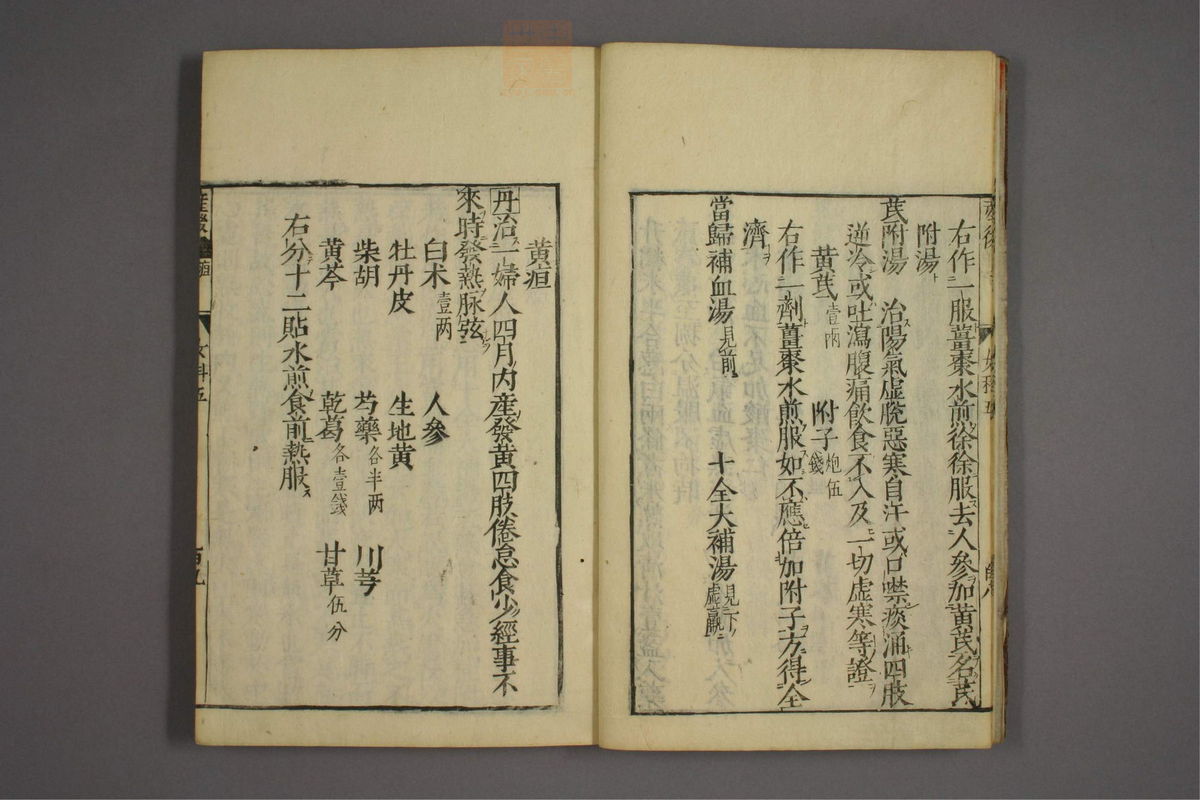 右作一服薑棗水煎徐徐服去人參加黄芪名芪
附湯
芪附湯　治陽氣虛脱惡寒自汗或口噤痰涌四肢
逆冷或吐瀉腹痛飲食不入及一切虛寒等證
黄芪壹兩　附子炮伍錢
右作一劑薑棗水煎服如不應倍加附子方得全
濟
當歸補血湯見前　十全大補湯見下虛羸
黄疸
丹治一婦人四月内産發黄四肢倦怠食少經事不
來時發熱脉弦
白术壹两　人參
牡丹皮　生地黄
柴胡　芍藥各半两　川芎
黄芩　乾葛各壹錢　甘草伍分
右分十二貼水煎食前熱服